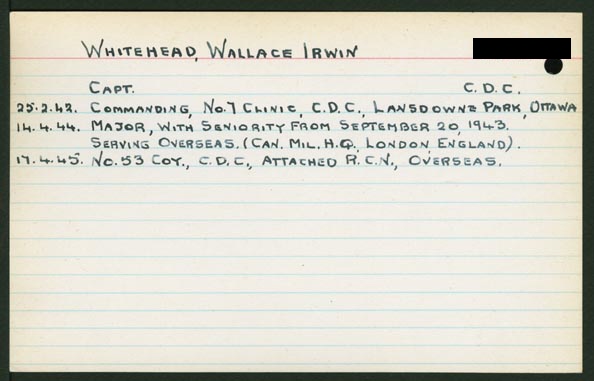 WHITEHEAD, WALLACE IRWIN
CAPT. C.D.C.
25.2.42. COMMANDING, NO.7 CLINIC, C.D.C., LANSDOWNE PARK, OTTAWA
14.4.44. MAJOR, WITH SENIORITY FROM SEPTEMBER 20, 1943.
SERVING OVERSEAS. (CAN. MIL. H.Q. LONDON, ENGLAND).
17.4.45. NO.53 COY., C.D.C., ATTACHED R.C.N., OVERSEAS.